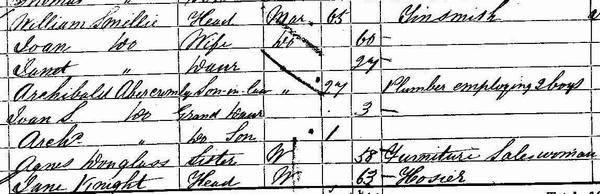 William Smillie Head Mar 65 Tinsmith
Joan Do Wife Do 60
Janet " Daur 27
Archibald Abercrombly Son-in-law " 27 Plumber employing 2 boys
Joan S. Do Grand Daur 3
Archd. " Do Son 1
Agnes Douglass Sister W 58 Furniture Saleswoman
Jane Knight Head W 63 Hosier